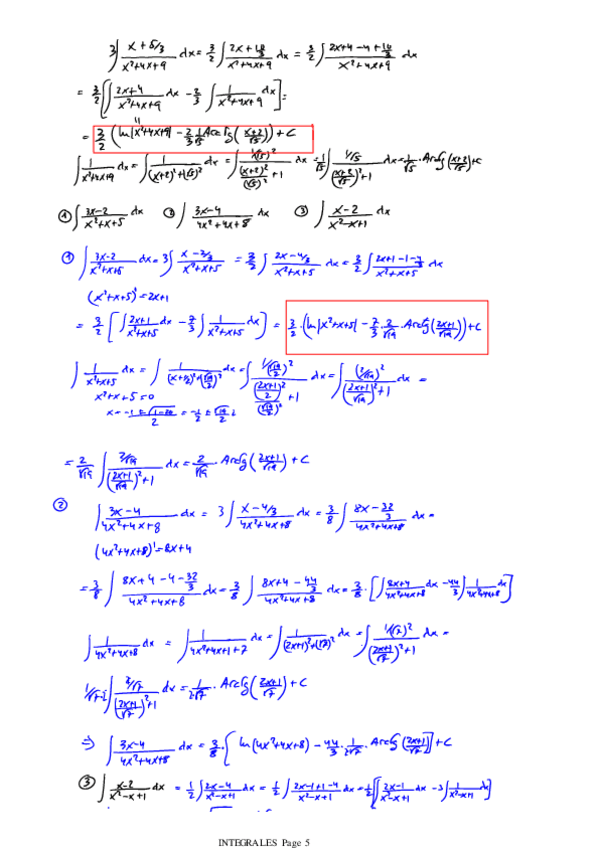 3∫ (x + 5/3)/(x²+4x+9) dx = 3/2 ∫ (2x + 10/3)/(x²+4x+9) dx = 3/2 ∫ (2x+4 -4 + 10/3)/(x²+4x+9) dx
= 3/2 [∫ (2x+4)/(x²+4x+9) dx - 2/3 ∫ 1/(x²+4x+9) dx] =
= 3/2 (ln|x²+4x+9| - 2/3 1/√5 Arctg((x+2)/√5)) + C
∫ 1/(x²+4x+9) dx = ∫ 1/((x+2)²+(√5)²) dx = ∫ 1/(√5)²/((x+2)²/(√5)² + 1) dx = 1/√5 ∫ 1/√5/(((x+2)/√5)² + 1) dx = 1/√5 · Arctg((x+2)/√5) + C
① ∫ (3x-2)/(x²+x+5) dx ② ∫ (3x-4)/(4x²+4x+8) dx ③ ∫ (x-2)/(x²-x+1) dx
① ∫ (3x-2)/(x²+x+5) dx = 3∫ (x - 2/3)/(x²+x+5) = 3/2 ∫ (2x - 4/3)/(x²+x+5) dx = 3/2 ∫ (2x+1-1-4/3)/(x²+x+5) dx
(x²+x+5)' = 2x+1
= 3/2 [∫ (2x+1)/(x²+x+5) dx - 7/3 ∫ 1/(x²+x+5) dx] = 3/2 · (ln|x²+x+5| - 7/3 2/√19 · Arctg((2x+1)/√19)) + C
∫ 1/(x²+x+5) dx = ∫ 1/((x+1/2)²+(√19/2)²) dx = ∫ 1/(√19/2)²/(((2x+1)/2)²/(√19/2)² + 1) dx = ∫ (2/√19)²/(((2x+1)/√19)² + 1) dx =
x²+x+5=0
x = (-1 ± √(1-20))/2 = -1/2 ± √19/2 i
= 2/√19 ∫ 2/√19/(((2x+1)/√19)² + 1) dx = 2/√19 · Arctg((2x+1)/√19) + C
② ∫ (3x-4)/(4x²+4x+8) dx = 3 ∫ (x - 4/3)/(4x²+4x+8) dx = 3/8 ∫ (8x - 32/3)/(4x²+4x+8) dx =
(4x²+4x+8)' = 8x+4
= 3/8 ∫ (8x+4-4-32/3)/(4x²+4x+8) dx = 3/8 ∫ (8x+4 - 44/3)/(4x²+4x+8) dx = 3/8 · [∫ (8x+4)/(4x²+4x+8) dx - 44/3 ∫ 1/(4x²+4x+8) dx]
∫ 1/(4x²+4x+8) dx = ∫ 1/(4x²+4x+1+7) dx = ∫ 1/((2x+1)²+(√7)²) dx = ∫ 1/(√7)²/(((2x+1)/√7)² + 1) dx =
∫ 2/√7/(((2x+1)/√7)² + 1) dx = 1/2√7 · Arctg((2x+1)/√7) + C
⇒ ∫ (3x-4)/(4x²+4x+8) dx = 3/8 · [ln(4x²+4x+8) - 44/3 · 1/2√7 · Arctg((2x+1)/√7)] + C
③ ∫ (x-2)/(x²-x+1) dx = 1/2 ∫ (2x-4)/(x²-x+1) dx = 1/2 ∫ (2x-1+1-4)/(x²-x+1) dx = 1/2 [∫ (2x-1)/(x²-x+1) dx - 3∫ 1/(x²-x+1) dx]
INTEGRALES Page 5